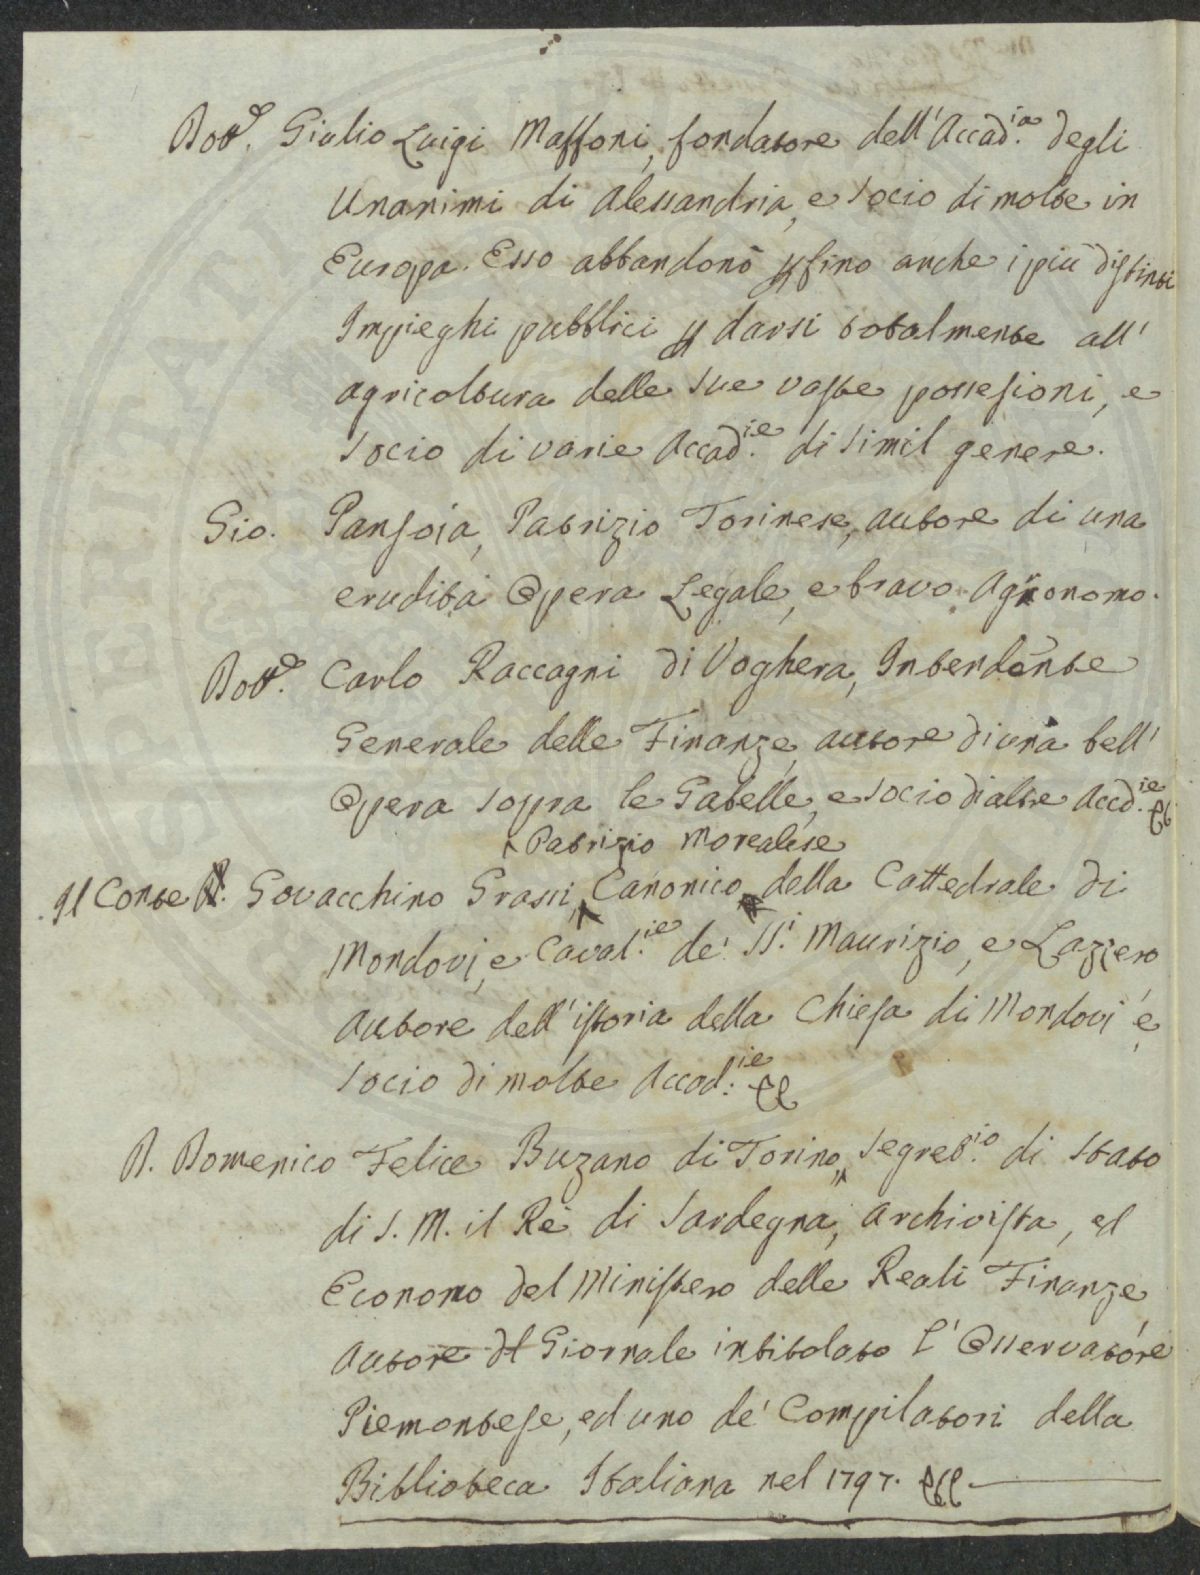 Dott.e Giulio Luigi Massoni, fondatore dell'Accad.ia degli
Unanimi di Alessandria, e Socio di molte in
Europa. Esso abbandonò fino anche i più distinti
Impieghi pubblici darsi totalmente all'
agricoltura delle sue vaste possesioni, e
Socio di varie Accad.ie di simil genere.
Gio. Pansoia, Patrizio Torinese, autore di una
erudita Opera Legale, e bravo Agronomo.
Dott.e Carlo Raccagni di Voghera, Intendente
Generale delle Finanze, autore di una bell'
Opera sopra le Gabelle, e socio di altre Accd.ie
Patrizio Morealese
Il Conte D. Govacchino Grassi, Canonico della Cattedrale di
Mondovi, e Caval.ie de' SS.i Maurizio, e Lazzero
autore dell'istoria della Chiesa di Mondovi, e
Socio di molte Accad.ie
D. Domenico Felice Buzano di Torino, Segret.io di Stato
di S. M. il Rè di Sardegna, Archivista, ed
Economo del Ministero delle Reali Finanze,
Autore del Giornale intitolato l'Osservatore
Piemontese, ed uno de' Compilatori della
Biblioteca Italiana nel 1797.